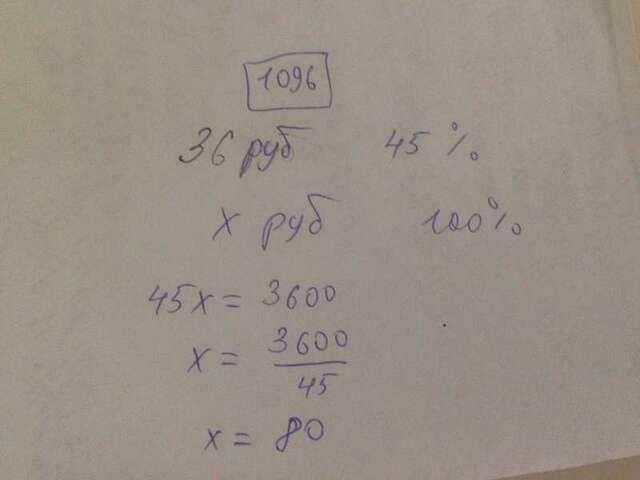 1096
36 руб 45 %
x руб 100%
45x = 3600
x = 3600/45
x = 80